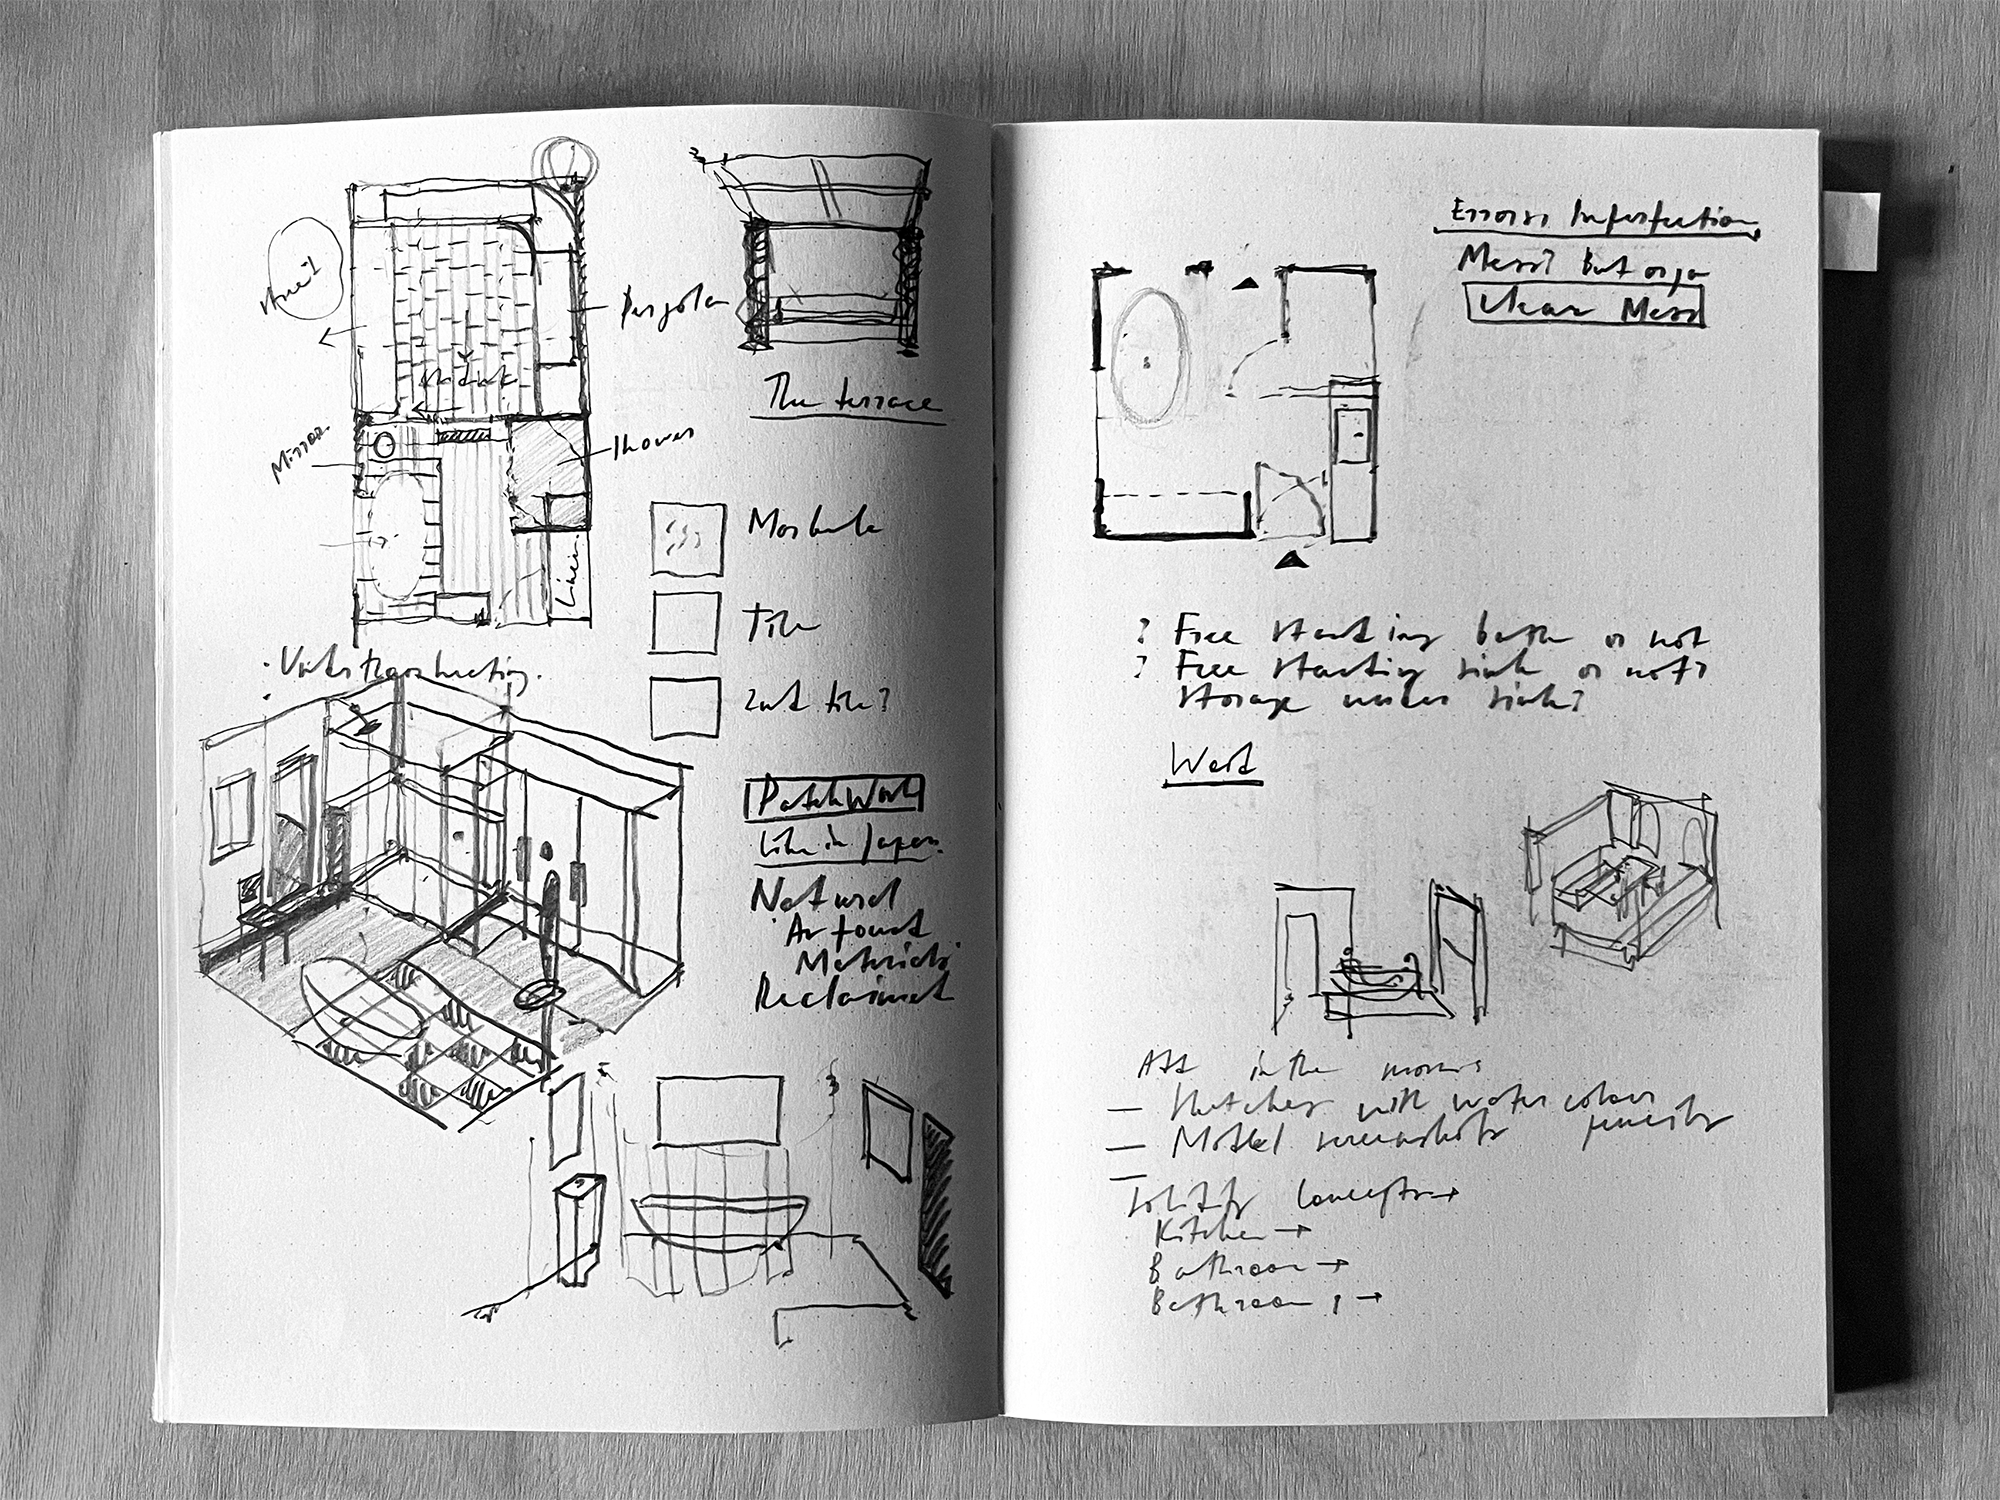 Pergola
Mirror
Shower
Linen
The terrace
Tile
2nd tile?
PatchWork
Like in Japan.
Natural
Materials
Reclaimed
Errors Imperfection
Mess? But orga
Clear Mess
? Free standing bath or not
? Free standing sink or not?
Storage under sink?
West
in the
— Sketches with water colour
pencils
— Model screenshots
—
Solidify Concepts →
Kitchen →
Bathroom →
Bathroom →